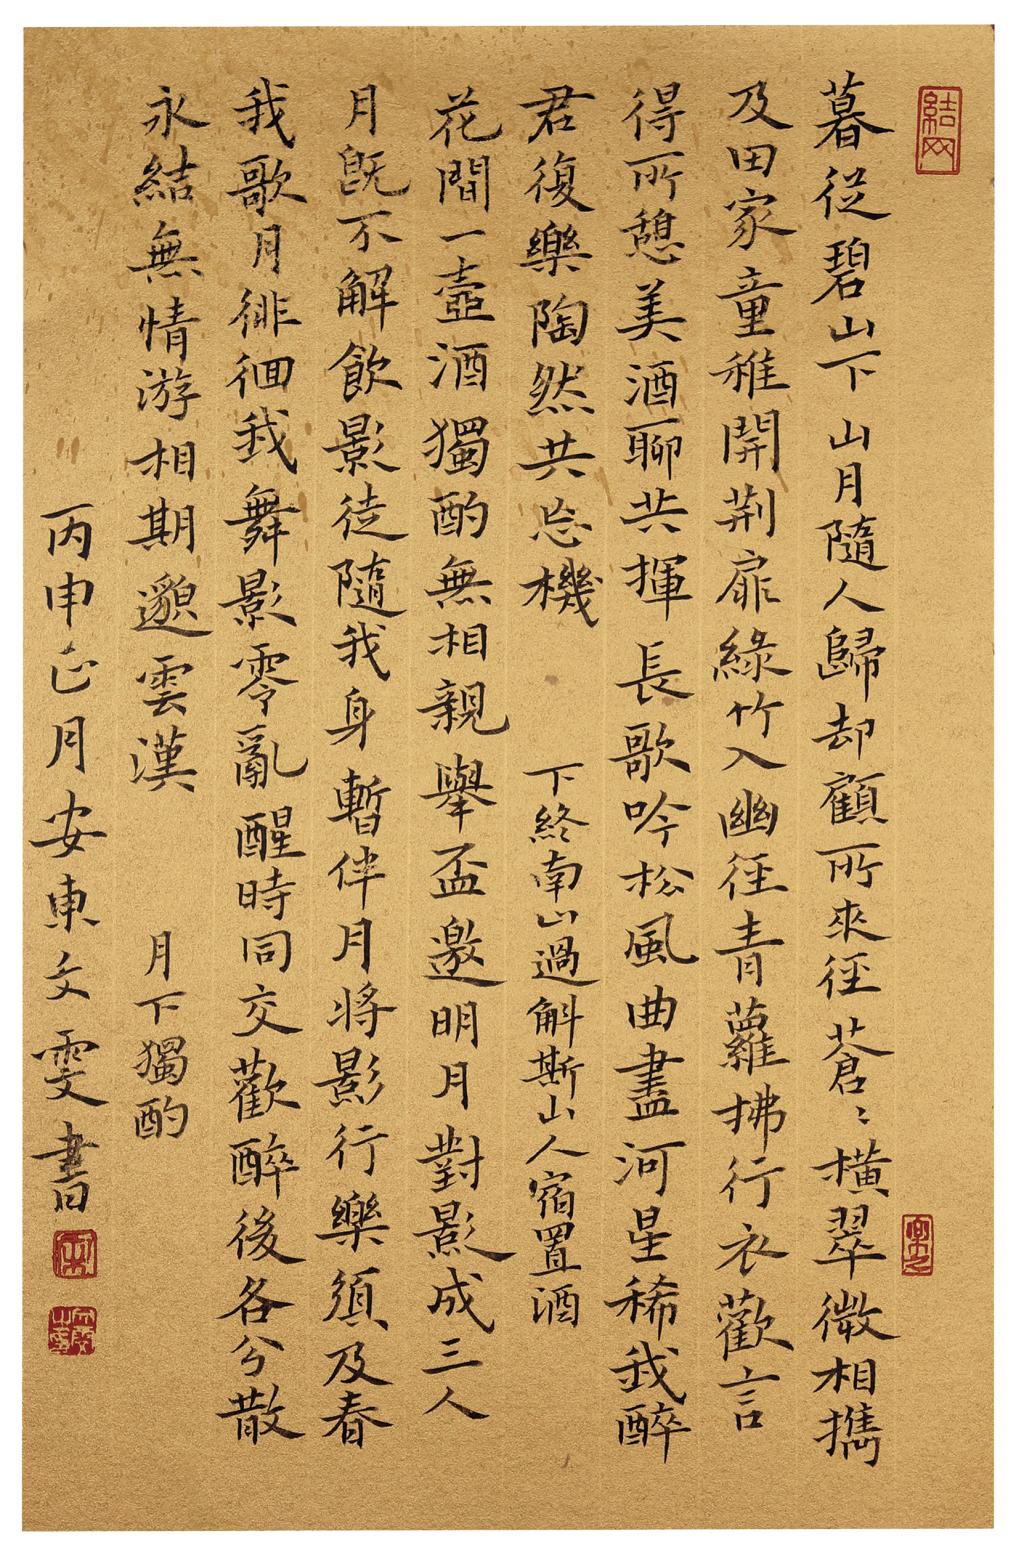 結网
暮從碧山下山月隨人歸却顧所來徑蒼〻橫翠微相攜
及田家童稚開荆扉綠竹入幽徑青蘿拂行衣歡言
得所憩美酒聊共揮長歌吟松風曲盡河星稀我醉
君復樂陶然共忘機 下終南山過斛斯山人宿置酒
花間一壺酒獨酌無相親舉盃邀明月對影成三人
月既不解飲影徒隨我身暫伴月將影行樂須及春
我歌月徘徊我舞影零亂醒時同交歡醉後各分散
永結無情游相期邈雲漢 月下獨酌
丙申正月安東文雯書